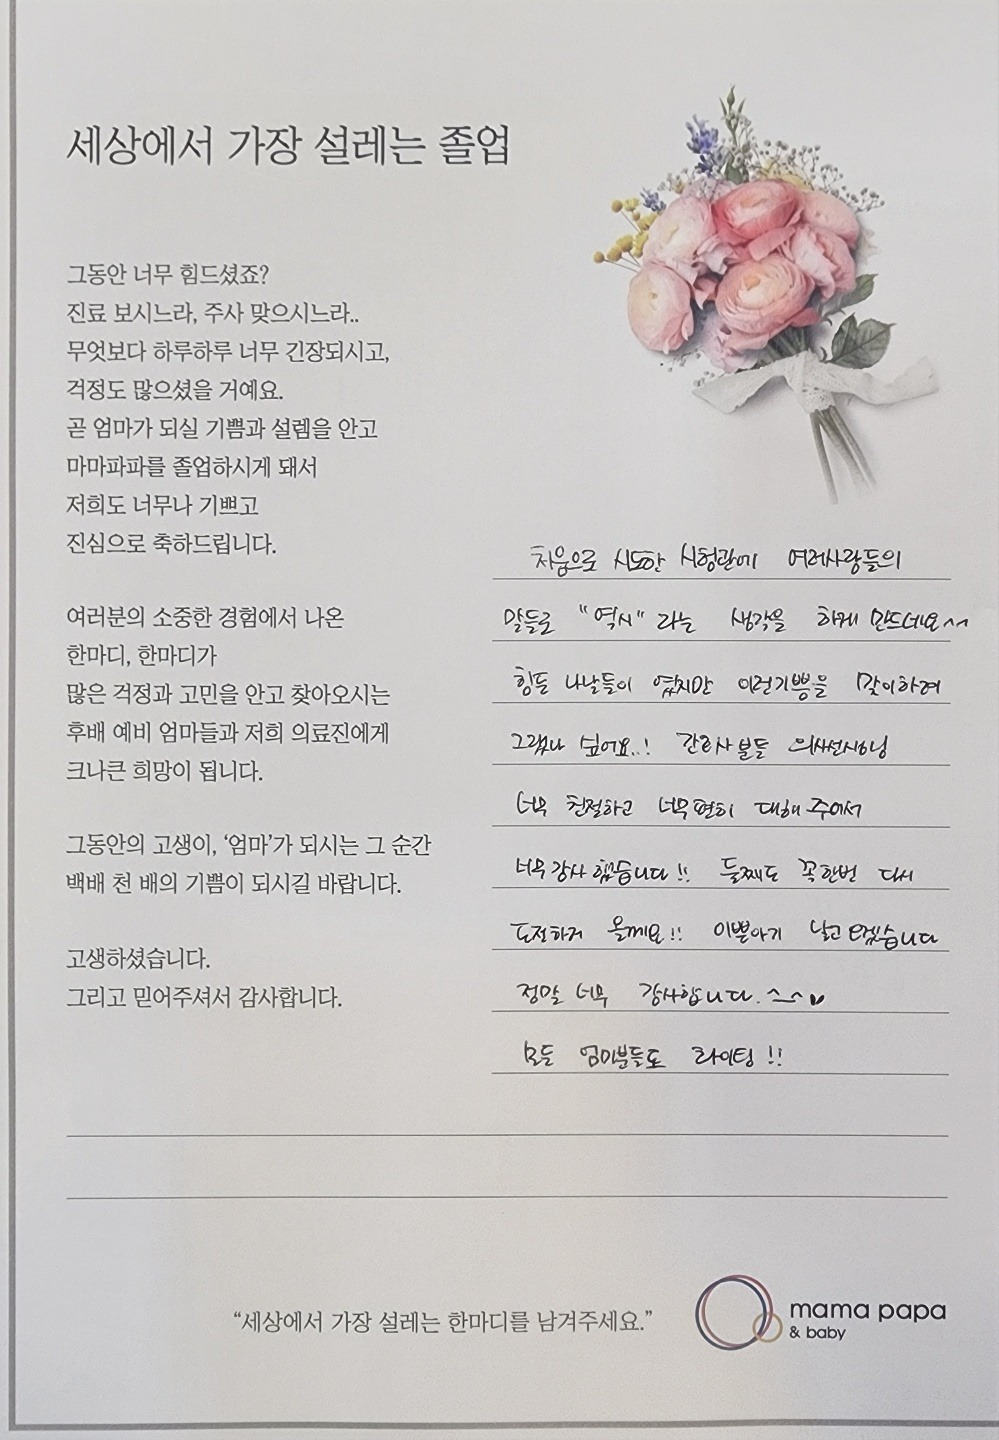 세상에서 가장 설레는 졸업
그동안 너무 힘드셨죠?
진료 보시느라, 주사 맞으시느라..
무엇보다 하루하루 너무 긴장되시고,
걱정도 많으셨을 거예요.
곧 엄마가 되실 기쁨과 설렘을 안고
마마파파를 졸업하시게 돼서
저희도 너무나 기쁘고
진심으로 축하드립니다.
여러분의 소중한 경험에서 나온
한마디, 한마디가
많은 걱정과 고민을 안고 찾아오시는
후배 예비 엄마들과 저희 의료진에게
크나큰 희망이 됩니다.
그동안의 고생이, ‘엄마’가 되시는 그 순간
백배 천 배의 기쁨이 되시길 바랍니다.
고생하셨습니다.
그리고 믿어주셔서 감사합니다.
처음으로 시도한 시험관에 여러사람들의
말들로 "역시" 라는 생각을 하게 만드네요^^
힘든 나날들이 였지만 이런기쁨을 맞이하려
그랬나 싶어요..! 간호사분들 의사선생님
너무 친절하고 너무편히 대해주어서
너무감사했습니다!! 둘째도 꼭한번 다시
도전하러 올께요!! 이쁜아기 낳고 오겠습니다
정말 너무 감사합니다.^^♥
모든 엄마분들도 화이팅!!
“세상에서 가장 설레는 한마디를 남겨주세요.”
mama papa
& baby